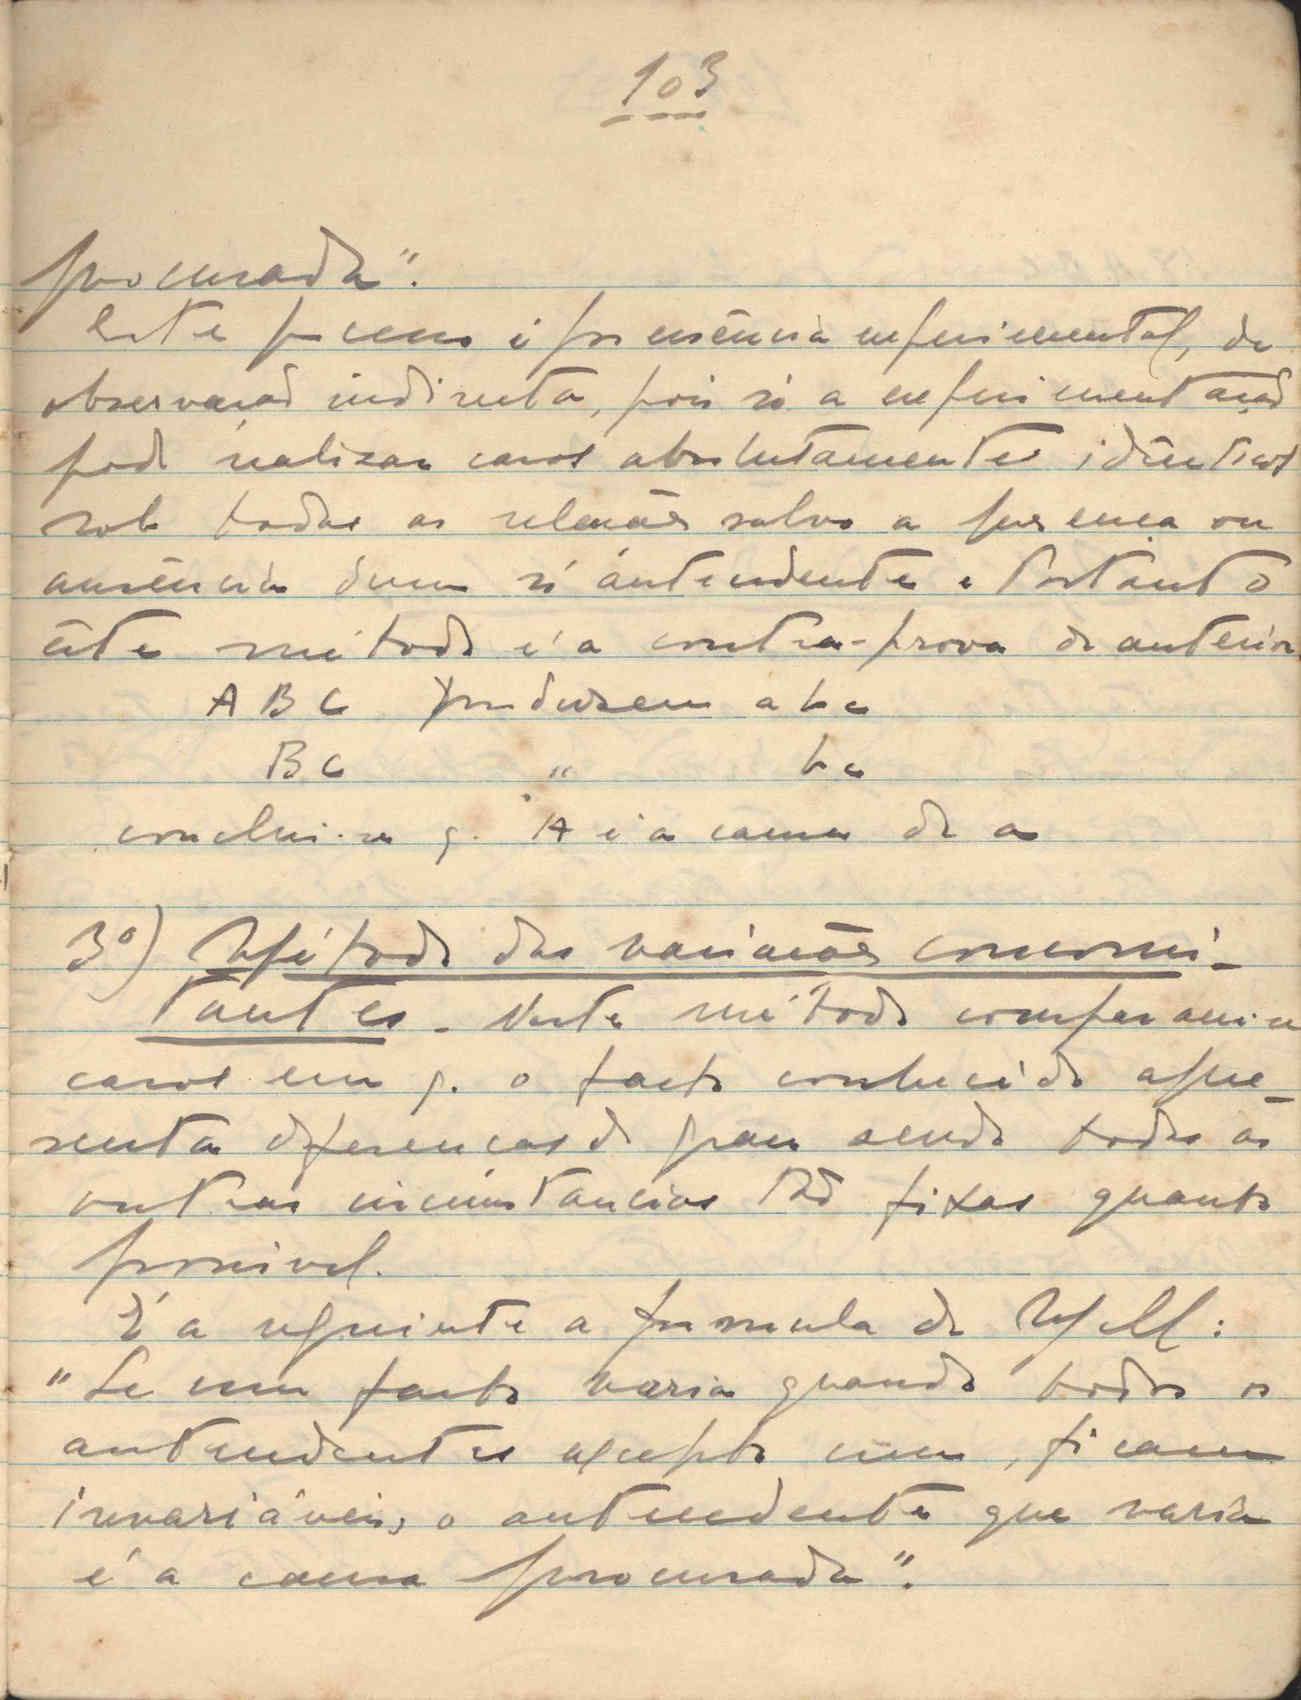 103
procurada".
Este processo é por essência experimental, de
observação indirecta, pois só a experimentação
pode realizar casos absolutamente idênticos
sob todas as relações salvo a presença ou
ausência dum só antecedente. Portanto
êste método é a contra-prova do anterior
A B C produzem a b c
B C " b c
conclui-se q. A é a causa de a
3º) Método das variações concomi-
tantes - Neste método comparam-se
casos em q. o facto conhecido apre-
senta diferenças de grau sendo todas as
outras circunstancias tão fixas quanto
possivel.
É a seguinte a formula de Mill:
"Se um facto varia quando todos os
antecedentes excepto um, ficam
invariáveis, o antecedente que varia
é a causa procurada".